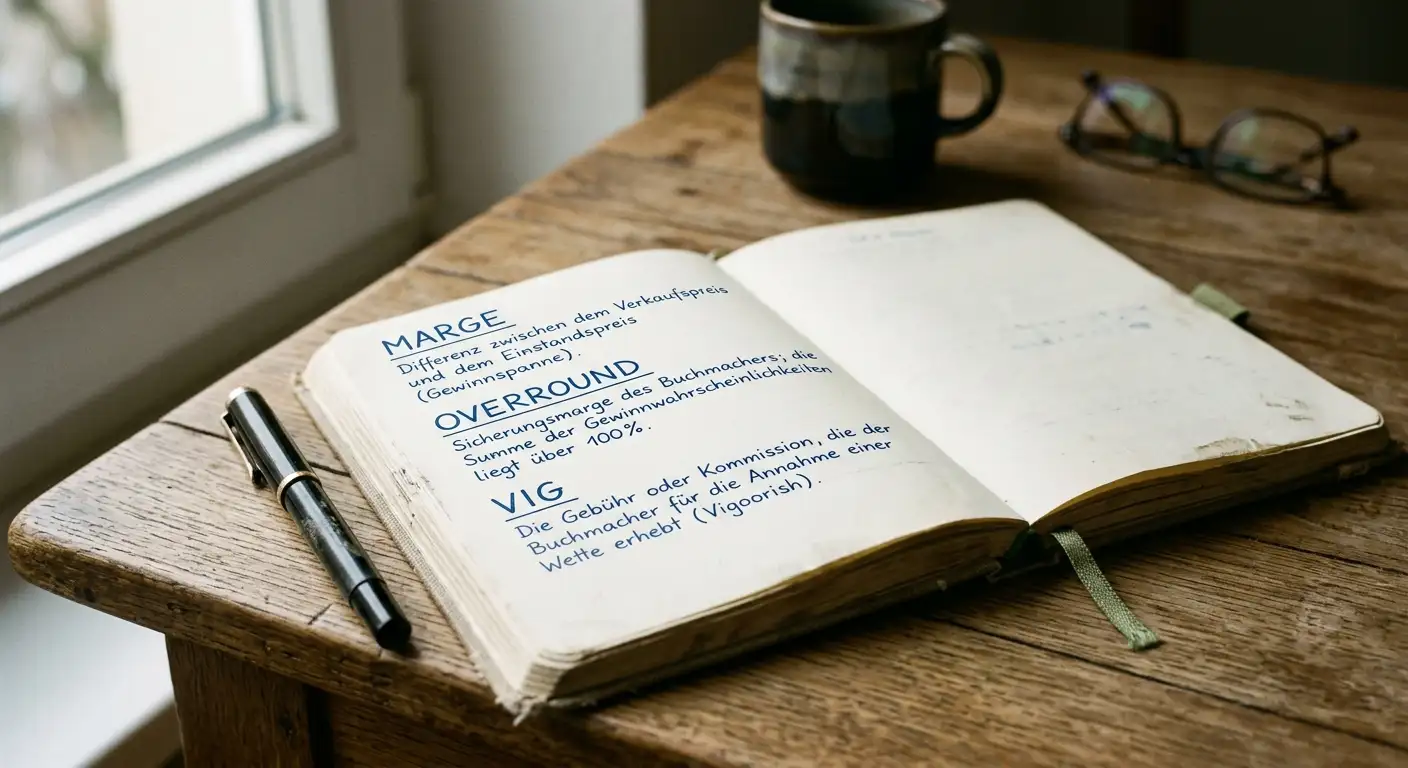 MARGE
Differenz zwischen dem Verkaufspreis
und dem Einstandspreis
(Gewinnspanne).
OVERROUND
Sicherungsmarge des Buchmachers; die
Summe der Gewinnwahrscheinlichkeiten
liegt über 100%.
VIG
Die Gebühr oder Kommission, die der
Buchmacher für die Annahme einer
Wette erhebt (Vigoorish).